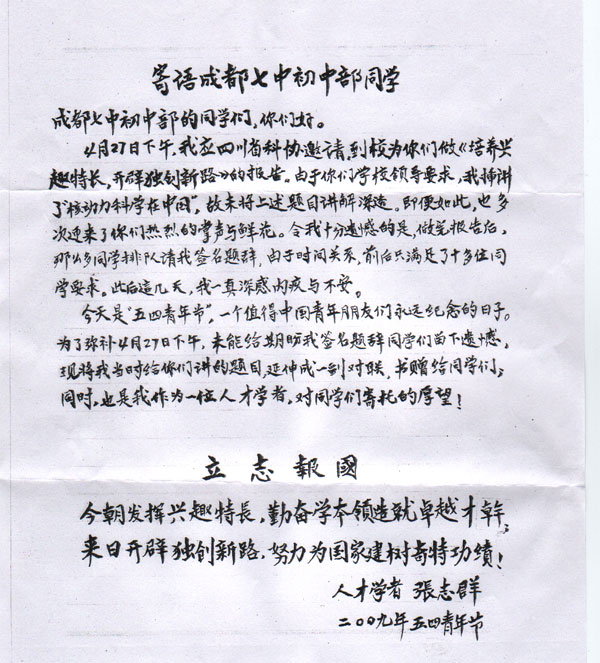 寄语成都七中初中部同学
成都七中初中部的同学们,你们好。
4月27日下午,我应四川省科协邀请,到校为你们做《培养兴
趣特长,开辟独创新路》的报告。由于你们学校领导要求,我插讲
了“核动力科学在中国”,故未将上述题目讲解深透。即便如此,也多
次迎来了你们热烈的掌声与鲜花。令我十分遗憾的是,做完报告后,
那么多同学排队请我签名题辞,由于时间关系,前后只满足了十多位同
学要求。此后這几天,我一真深感内疚与不安。
今天是“五四青年节”,一个值得中国青年朋友们永远纪念的日子。
为了弥补4月27日下午,未能给期盼我签名题辞同学们留下遗憾,
现将我当时给你们讲的题目,延伸成一副对联,书赠给同学们;
同时,也是我作为一位人才学者,对同学们寄托的厚望!
立志報國
今朝发挥兴趣特長,勤奋学本领造就卓越才幹;
来日开辟独创新路,努力为国家建树奇特功績!
人才学者 張志群
二00九年五四青年节